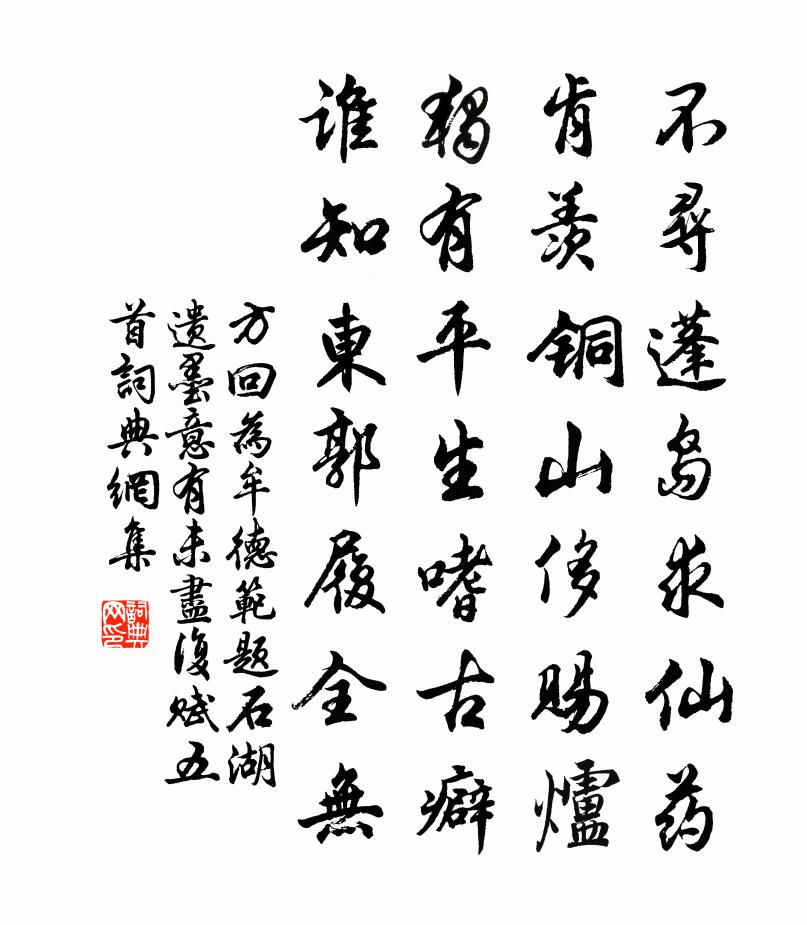 不尋蓬島求仙药
肯羨銅山侈賜爐
獨有平生嗜古癖
誰知東郭履全無
方回為牟德範題石湖
遺墨意有未盡復赋五
首詞典網集
詞典网印